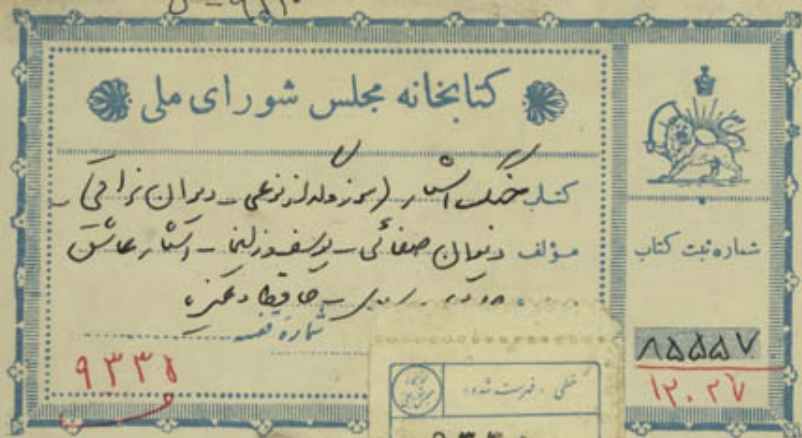 ۹۲۱۰
کتابخانه مجلس شورای ملی
کتاب جنگ اشعار (سوز و گداز نوعی - دیوان نراقی -
مؤلف دیوان صفائی - یوسف و زلیخا - اشعار عاشق
حافظ و غیره
شماره قفسه
۹۳۳۵
شماره ثبت کتاب
۸۵۵۵۷
۱۲۰۲۷
خطی - فهرست شده